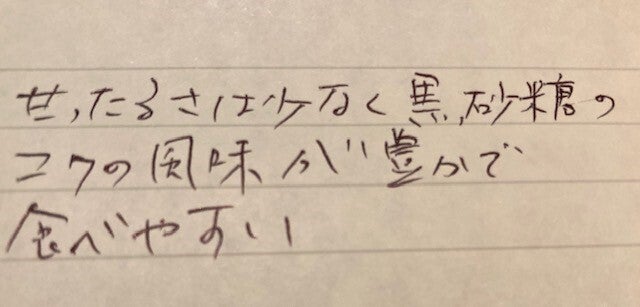 甘ったるさは少なく黒砂糖の
コクの風味が豊かで
食べやすい